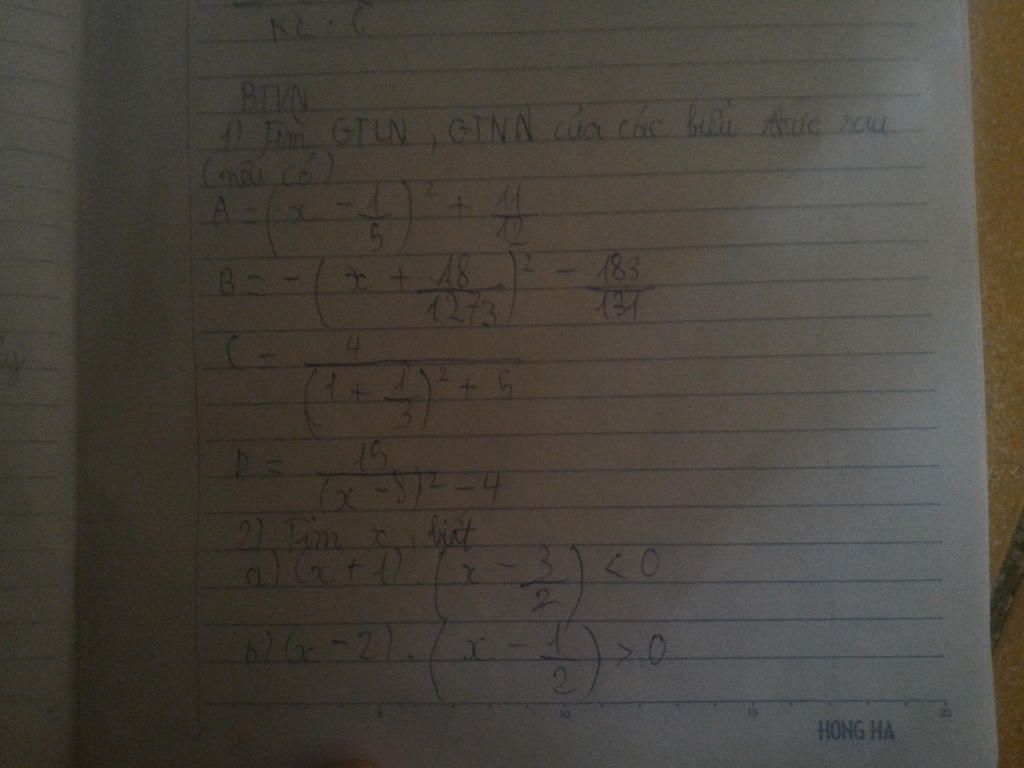 KL : C
BTVN
1) Tìm GTLN, GTNN của các biểu thức sau
(nếu có)
A = (x - 1/5)² + 11/12
B = - (x + 18/1273)² - 183/131
C = 4/((1 + 1/3)² + 5)
D = 15/((x - 8)² - 4
2) Tìm x, biết
a) (x + 1) . (x - 3/2) < 0
b) (x - 2) . (x - 1/2) > 0
5 10 15 20
HONG HA